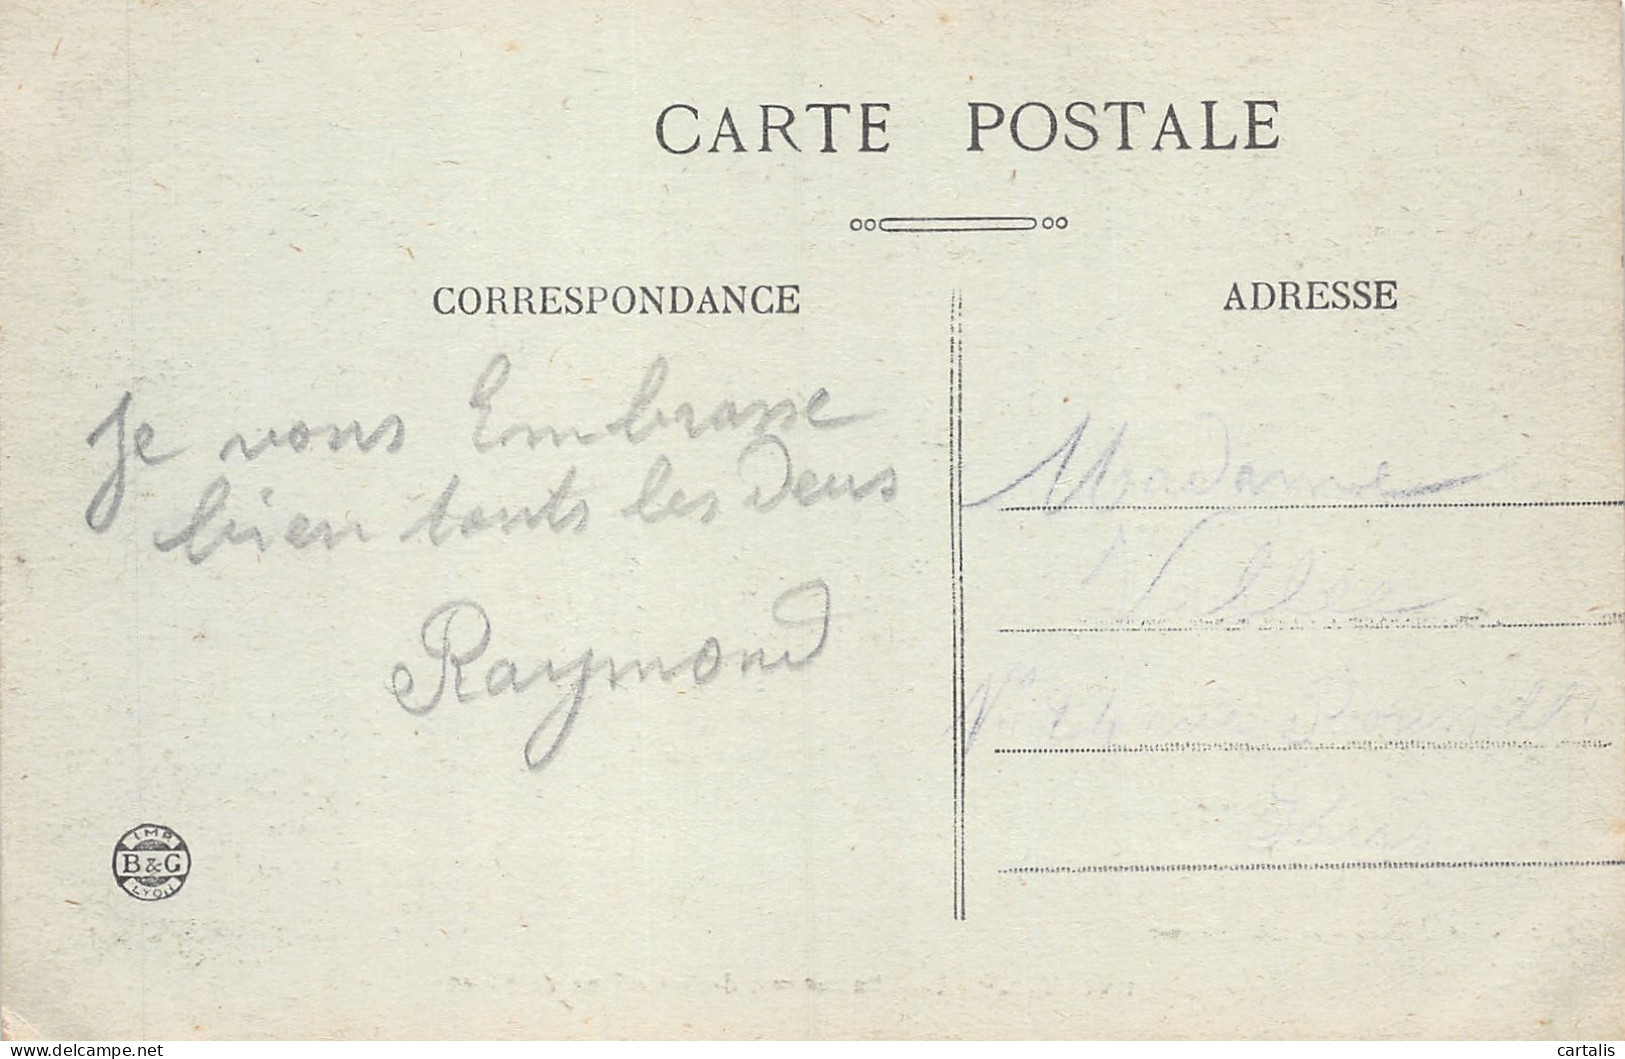 CARTE POSTALE
CORRESPONDANCE
Je vous Embrasse
bien touts les Deus
Raymond
IMP.
B & G
LYON
ADRESSE
Madame
www.delcampe.net
cartalis